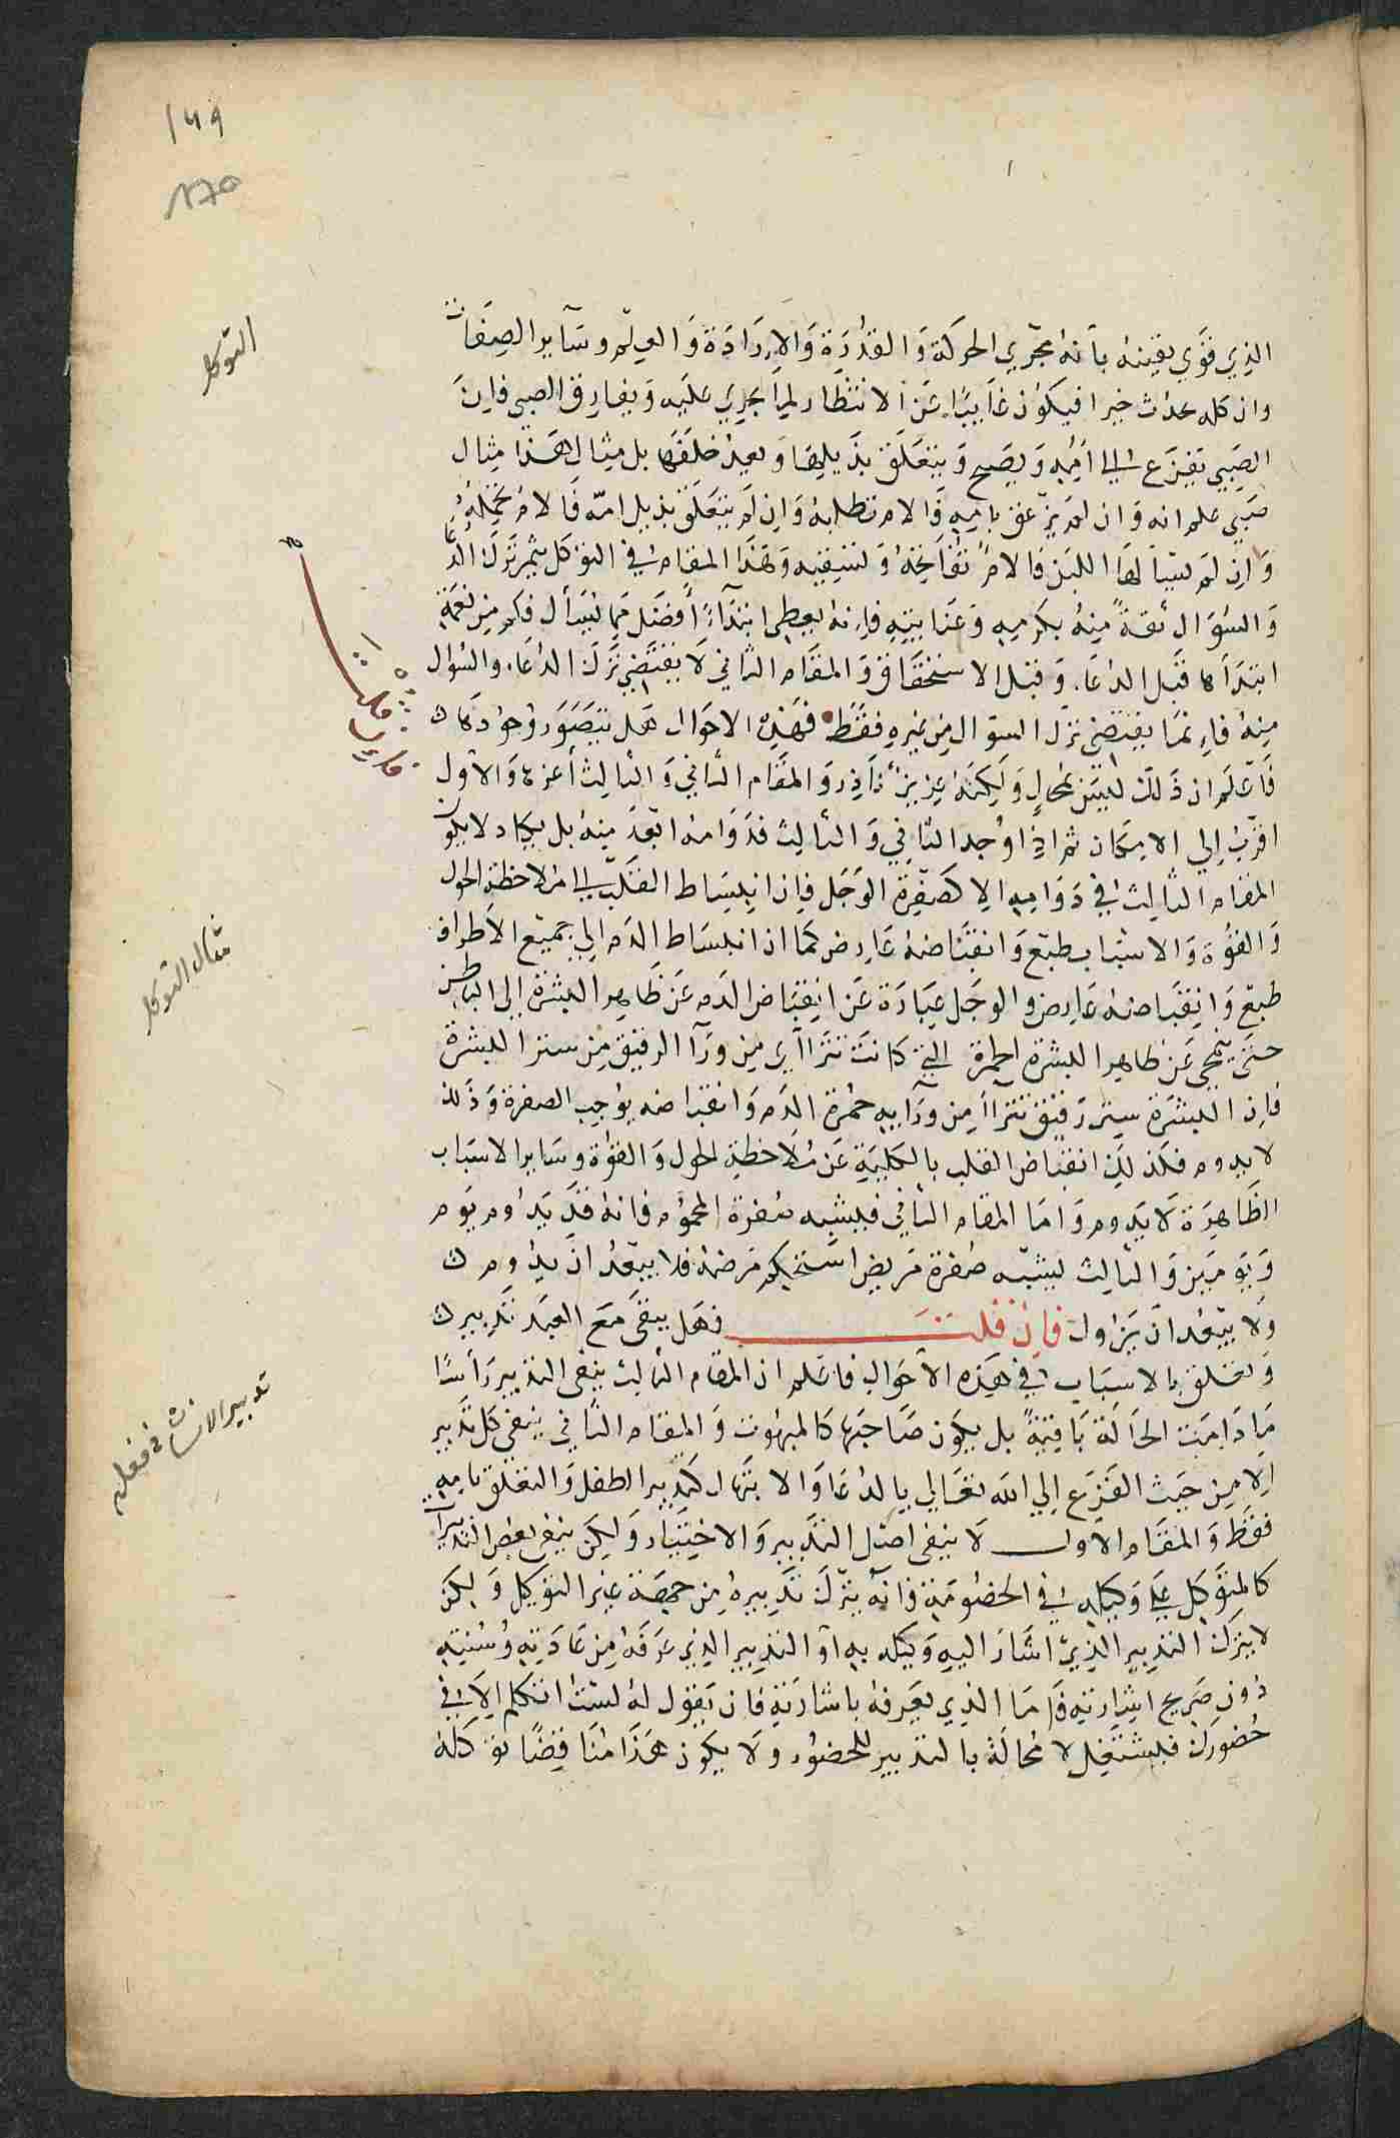 ١٦٩
١٧٥
التوكل
الذي قوي يقينه بأنه مجري الحركة والقدرة والإرادة والعلم وسآير الصفات
وان كله يحدث جبرا فيكون غايبا عن الانتظار لما يجري عليه ويفارق الصبي فان
الصبي يفزع إلى امه ويصيح ويتعلق بذيلها ويعدو خلفها بل مثال هذا مثال
صبي علم انه وان لم يزعق بامه فالام تطلبه وان لم يتعلق بذيل امه فالام تحمله
وان لم يسألها اللبن فالام تفاتحه وتسقيه وهذا المقام في التوكل يثمر ترك الدعا
والسؤال ثقة منه بكرمه وعنايته فانه يعطي ابتدآءً أفضل مما يسأل فكم من نعمة
ابتدأها قبل الدعاء وقبل الاستحقاق والمقام الثاني لا يقتضي ترك الدعاء والسؤال
منه فإنما يقتضي ترك السؤال من غيره فقط فهذه الاحوال هل يتصور وجودها
فان قلت
فاعلم ان ذلك ليس بمحال ولكنه عزيز نادر والمقام الثاني والثالث أعزها والأول
اقرب إلي الامكان ثم اذا وجد الثاني والثالث فدوامه ابعد منه بل يكاد لا يكون
المقام الثالث في دوامه الا كصفرة الوجل فإن انبساط القلب إلى ملاحظة الحول
والقوة والاسباب طبع وانقباضه عارض كما ان انبساط الدم إلى جميع الأطراف
مثال التوكل
طبع وانقباضه عارض والوجل عبارة عن انقباض الدم عن ظاهر البشرة إلى الباطن
حتى تنمحي عن ظاهر البشرة الحمرة التي كانت تتراأى من ورآ الرقيق من ستر البشرة
فان البشرة ستر رقيق تتراآ من ورآيه حمرة الدم وانقباضه يوجب الصفرة وذلك
لا يدوم فكذلك انقباض القلب بالكلية عن ملاحظة الحول والقوة وساير الاسباب
الظاهرة لا يدوم واما المقام الثاني فيشبه صفرة المحموم فانه قد يدوم يوم
ويومين والثالث يشبه صفرة مريض استحكم مرضه فلا يبعد ان يدوم
ولا يبعد ان يزول فإن قلت فهل يبقى مع العبد تدبير
وتعلق بالاسباب في هذه الأحوال فاعلم ان المقام الثالث ينفي التدبير رأسًا
ما دامت الحالة باقية بل يكون صاحبها كالمبهوت والمقام الثاني ينفي كل تدبير
تدبير الانسان في فعله
الا من حيث الفزع إلي الله تعالي بالدعا والابتهال كتدبير الطفل والتعلق بامه
فقط والمقام الاول لا ينفي اصل التدبير والاختيار ولكن ينفي بعض التدبيرآت
كالمتوكل على وكيله في الخصومة فانه يترك تدبيره من جهة غير التوكيل ولكن
لا يترك التدبير الذي اشار اليه وكيله به او التدبير الذي عرفه من عادته وسنته
دون صريح اشارته فاما الذي يعرفه باشارته فان يقول له لست اتكلم الا في
حضورك فيشتغل لا محالة بالتدبير للحضور ولا يكون هذا مناقضًا توكله